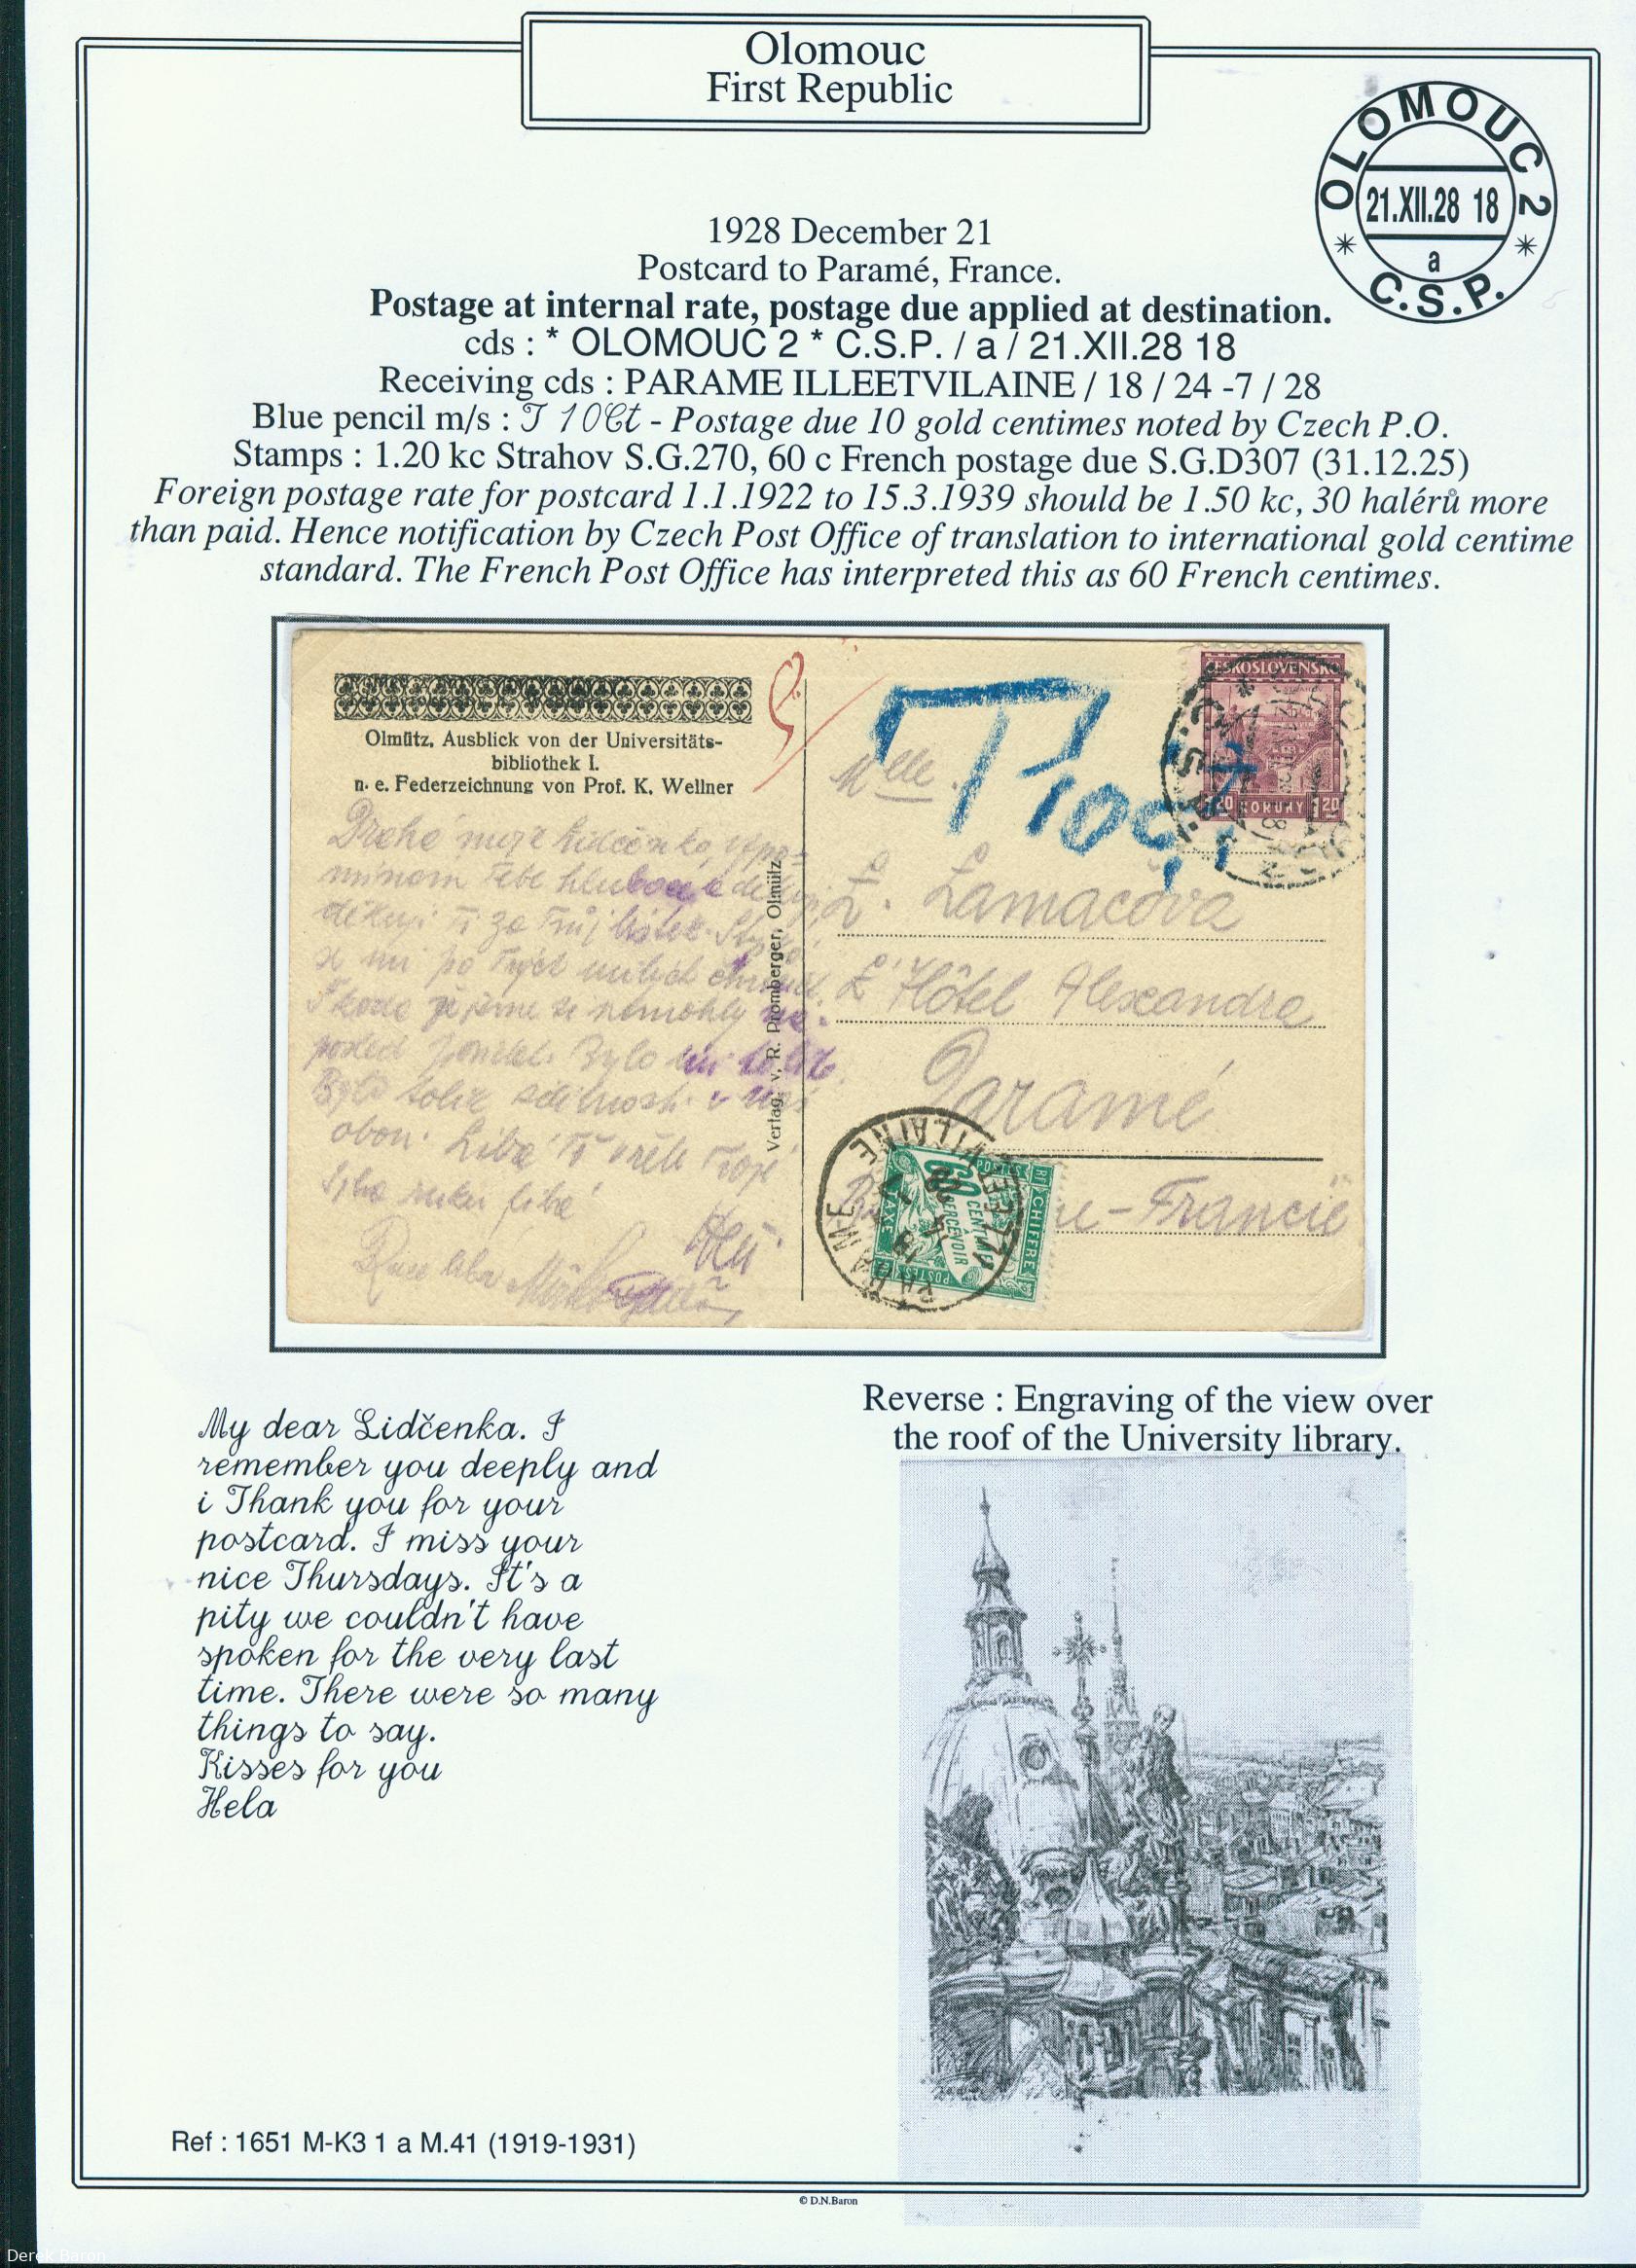 Olomouc
First Republic
OLOMOUC 2
21.XII.28 18
a
C.S.P.
1928 December 21
Postcard to Paramé, France.
Postage at internal rate, postage due applied at destination.
cds : * OLOMOUC 2 * C.S.P. / a / 21.XII.28 18
Receiving cds : PARAME ILLEETVILAINE / 18 / 24 -7 / 28
Blue pencil m/s : T 10Ct - Postage due 10 gold centimes noted by Czech P.O.
Stamps : 1.20 kc Strahov S.G.270, 60 c French postage due S.G.D307 (31.12.25)
Foreign postage rate for postcard 1.1.1922 to 15.3.1939 should be 1.50 kc, 30 halérů more
than paid. Hence notification by Czech Post Office of translation to international gold centime
standard. The French Post Office has interpreted this as 60 French centimes.
Olmütz, Ausblick von der Universitäts-
bibliothek I.
n. e. Federzeichnung von Prof. K. Wellner
Drahá moje Lidčenko,
děkuji Ti za Tvůj lístek.
se mi po Tvých milých
Škoda že jsme si nemohly
Bylo tolik
Verlag. v. R. Promberger, Olmütz
ČESKOSLOVENSKO
KORUNY 1 20
T 10
Mlle
L. Lamačova
L'Hôtel Alexandre
Paramé
Francie
PARAME
VILAINE
CHIFFRE TAXE
60 CENTIMES
A PERCEVOIR
POSTES
My dear Lidčenka. I
remember you deeply and
i Thank you for your
postcard. I miss your
nice Thursdays. It's a
pity we couldn't have
spoken for the very last
time. There were so many
things to say.
Kisses for you
Hela
Reverse : Engraving of the view over
the roof of the University library.
Ref : 1651 M-K3 1 a M.41 (1919-1931)
© D.N.Baron
Derek Baron